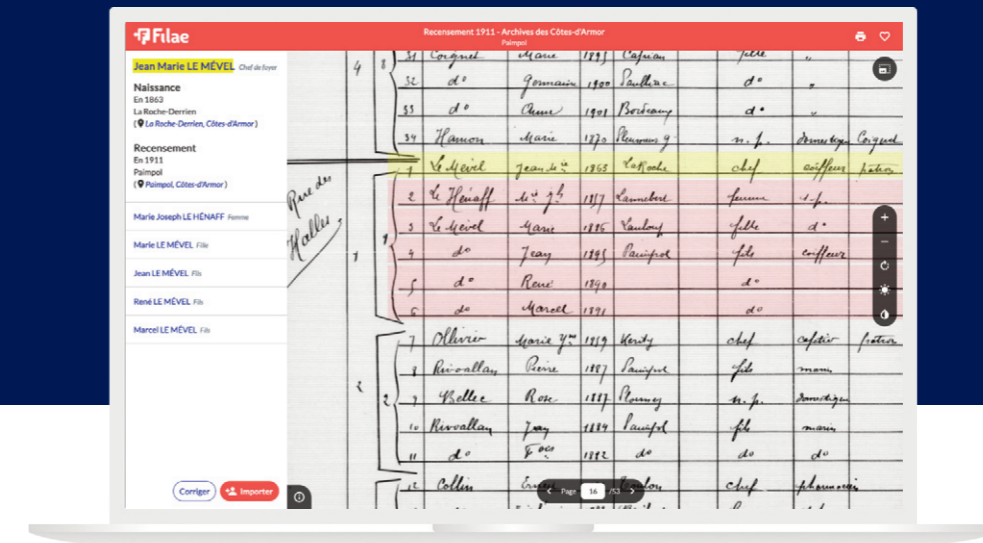 Filae
Recensement 1911 - Archives des Côtes-d'Armor
Paimpol
Jean Marie LE MÉVEL Chef de foyer
Naissance
En 1863
La Roche-Derrien
( La Roche-Derrien, Côtes-d'Armor )
Recensement
En 1911
Paimpol
( Paimpol, Côtes-d'Armor )
Marie Joseph LE HÉNAFF Femme
Marie LE MÉVEL Fille
Jean LE MÉVEL Fils
René LE MÉVEL Fils
Marcel LE MÉVEL Fils
Corriger Importer
Rue des
Halles
4 8 31 Coignet Marie fille
32 do Germaine 1900 do
33 do 1901 Bordeaux do
34 Hamon Marie 1870 n. p. Coignet
1 Le Mével 1863 La Roche chef coiffeur patron
2 Le Hénaff Lannebert femme s.p.
3 Le Mével Marie fille do
4 do Jean Paimpol fils coiffeur
5 do René 1890 do
6 do Marcel 1891 do
7 Ollivier Marie Kerity chef patron
2 2 8 Rivoallan Pierre 1887 Paimpol fils marin
9 Bellec Rose n. p.
10 Rivoallan Jean Paimpol fils marin
11 do do do do
12 Collin Toulon chef pharmacien
Page 16 /53